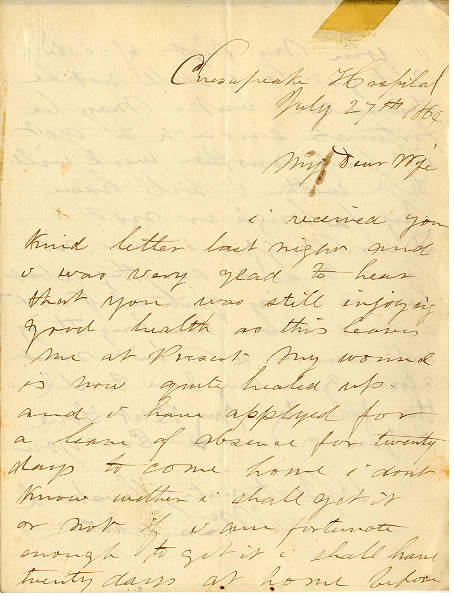 Chesapeake Hospital
July 27th 1864
My Dear Wife
i received you
kind letter last night and
i was very glad to hear
that you was still injoying
good health as this leaves
me at Present My wound
is now quite healed up
and i have applyed for
a leave of absence for twenty
days to come home i dont
know wether i shall get it
or not if i am fortunate
enough to get it i shall have
twenty days at home before